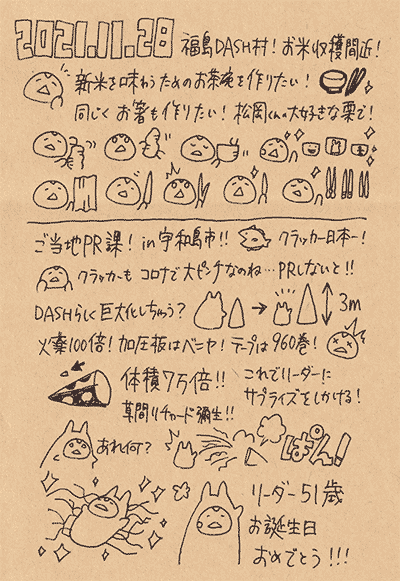 2021.11.28
福島DASH村！お米収穫間近！
新米を味わうためのお茶碗を作りたい！
同じくお箸も作りたい！松岡くんの大好きな栗で！
ご当地PR課！in宇和島市!!
クラッカー日本一！
クラッカーもコロナで大ピンチなのね…PRしないと!!
DASHらしく巨大化しちゃう？
3m
火薬100倍！加圧板はベニヤ！テープは960巻！
体積7万倍!!
これでリーダーに
サプライズをしかける！
草間リチャード彌生!!
あれ何？
ぱん！
リーダー51歳
お誕生日
おめでとう!!!